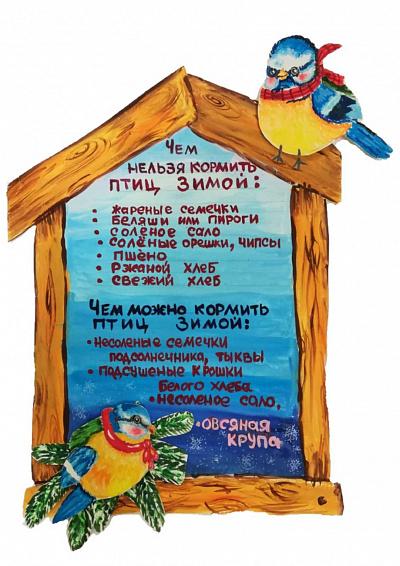 Чем
нельзя кормить
птиц зимой:
• жареные семечки
• Беляши или пироги
• солёное сало
• солёные орешки, чипсы
• Пшено
• Ржаной хлеб
• свежий хлеб
Чем можно кормить
птиц зимой:
• Несоленые семечки
подсолнечника, тыквы
• Подсушеные крошки
Белого хлеба
• несоленое сало,
• овсяная
крупа